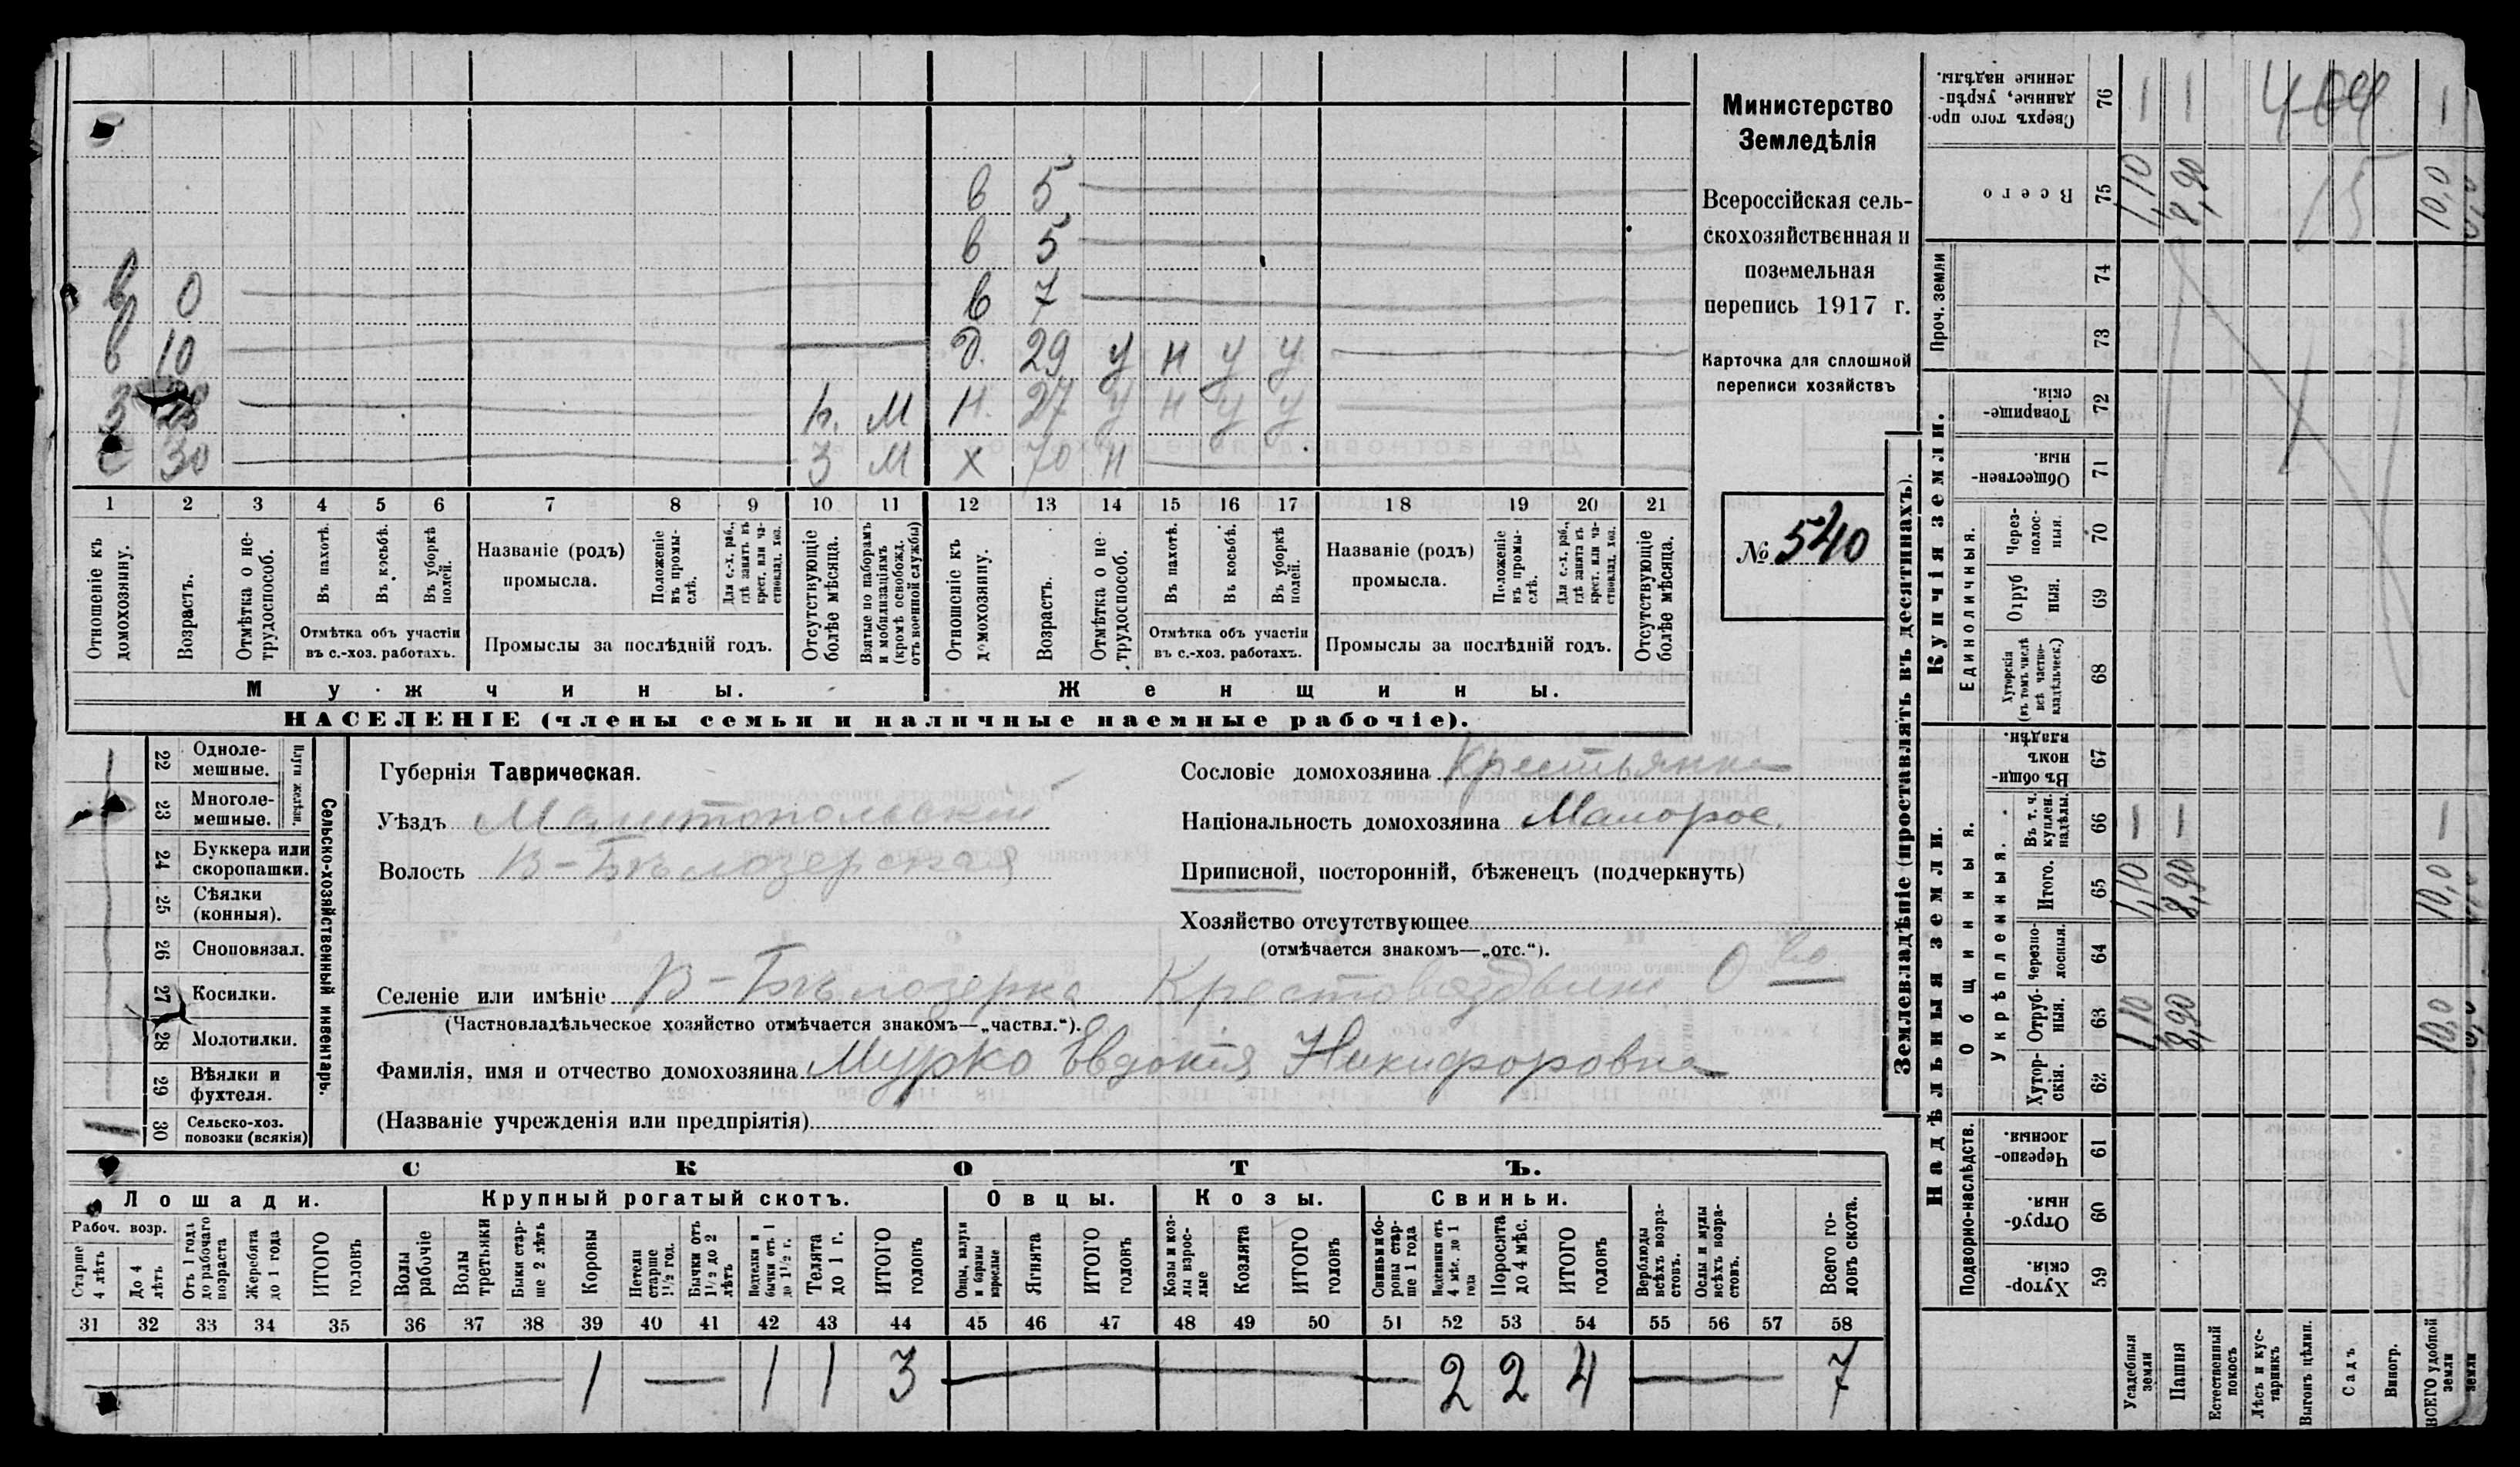 в 5
в 5
в 0 в 7
в 10 д. 29 у н у у
З 28 М Н. 27 у н у у
с 30 З М х 70 н
1 2 3 4 5 6 7 8 9 10 11 12 13 14 15 16 17 18 19 20 21
Отношеніе къ домохозяину.
Возрастъ.
Отмѣтка о не-
трудоспособ.
Въ пахотѣ.
Въ косьбѣ.
Въ уборкѣ
полей.
Отмѣтка объ участіи
въ с.-хоз. работахъ.
Названіе (родъ)
промысла.
Положеніе
въ промы-
слѣ.
Для с.-х. раб.,
гдѣ занятъ въ
крест. или ча-
стновлад. хоз.
Промыслы за послѣдній годъ.
Отсутствующіе
болѣе мѣсяца.
Взятые по наборамъ
и мобилизаціямъ
(кромѣ освобожд.
отъ военной службы)
Отношеніе къ
домохозяину.
Возрастъ.
Отмѣтка о не-
трудоспособ.
Въ пахотѣ.
Въ косьбѣ.
Въ уборкѣ
полей.
Отмѣтка объ участіи
въ с.-хоз. работахъ.
Названіе (родъ)
промысла.
Положеніе
въ промы-
слѣ.
Для с.-х. раб.,
гдѣ занята въ
крест. или ча-
стновлад. хоз.
Промыслы за послѣдній годъ.
Отсутствующіе
болѣе мѣсяца.
Мужчины.
Женщины.
НАСЕЛЕНІЕ (члены семьи и наличные наемные рабочіе).
Министерство
Земледѣлія
Всероссійская сель-
скохозяйственная и
поземельная
перепись 1917 г.
Карточка для сплошной
переписи хозяйствъ
№ 540
22 Одноле-
мешные.
23 Многоле-
мешные.
Плуги желѣзн.
24 Буккера или
скоропашки.
25 Сѣялки
(конныя).
26 Сноповязал.
27 Косилки.
28 Молотилки.
29 Вѣялки и
фухтеля.
30 Сельско-хоз.
повозки (всякія)
Сельско-хозяйственный инвентарь.
Губернія Таврическая.
Уѣздъ Мелитопольскій
Волость В-Бѣлозерская
Сословіе домохозяина Крестьянка
Національность домохозяина Малорос.
Приписной, посторонній, бѣженецъ (подчеркнуть)
Хозяйство отсутствующее
(отмѣчается знакомъ—„отс.“).
Селеніе или имѣніе В-Бѣлозерка Крестовоздвиж О во
(Частновладѣльческое хозяйство отмѣчается знакомъ—„частвл.“).
Фамилія, имя и отчество домохозяина Мурко Евдокія Никифоровна
(Названіе учрежденія или предпріятія)
СКОТЪ.
Лошади. Крупный рогатый скотъ. Овцы. Козы. Свиньи.
Рабоч. возр.
Старше
4 лѣтъ
До 4
лѣтъ
Отъ 1 года
до рабочаго
возраста
Жеребята
до 1 года
ИТОГО
головъ
Волы
рабочіе
Волы
третьяки
Быки стар-
ше 2 лѣтъ
Коровы
Нетели
старше
1½ год.
Бычки отъ
1½ до 2
лѣтъ
Подтелки и
бычки отъ 1
до 1½ г.
Телята
до 1 г.
ИТОГО
головъ
Овцы, валухи
и бараны
взрослые
Ягнята
ИТОГО
головъ
Козы и коз-
лы взрос-
лые
Козлята
ИТОГО
головъ
Свиньи и бо-
ровы стар-
ше 1 года
Подсвинки отъ
4 мѣс. до 1
года
Поросята
до 4 мѣс.
ИТОГО
головъ
Верблюды
всѣхъ возра-
стовъ.
Ослы и мулы
всѣхъ возра-
стовъ.
Всего го-
ловъ скота.
31 32 33 34 35 36 37 38 39 40 41 42 43 44 45 46 47 48 49 50 51 52 53 54 55 56 57 58
1 1 1 3 2 2 4 7
Землевладѣніе (проставлять въ десятинахъ).
Надѣльныя земли.
Купчія земли.
Проч. земли
Подворно-наслѣдств.
Общинныя.
Укрѣпленныя.
Единоличныя.
Сверхъ того про-
данные, укрѣп-
ленные надѣлы. 76 404
Всего 75 1,10 8,90 15 10,0
74
73
Товарище-
скія. 72
Обществен-
ныя. 71
Через-
полос-
ныя. 70
Отруб
ныя. 69
Хуторскія
(въ томъ числѣ
всѣ частно-
владѣльческ.) 68
Въ общи-
номъ
владѣн. 67
Въ т. ч.
куплен.
надѣлы. 66
Итого. 65 1,10 8,90 10,0
Черезпо-
лосныя. 64
Отруб-
ныя. 63 1,10 8,90 10,0
Хутор-
скія. 62
Черезпо-
лосныя. 61
Отруб-
ныя. 60
Хутор-
скія. 59
Усадебныя
земли
Пашня
Естественный
покосъ
Лѣсъ и кус-
тарникъ
Выгонъ цѣлин.
Садъ
Виногр.
ВСЕГО удобной
земли
земли